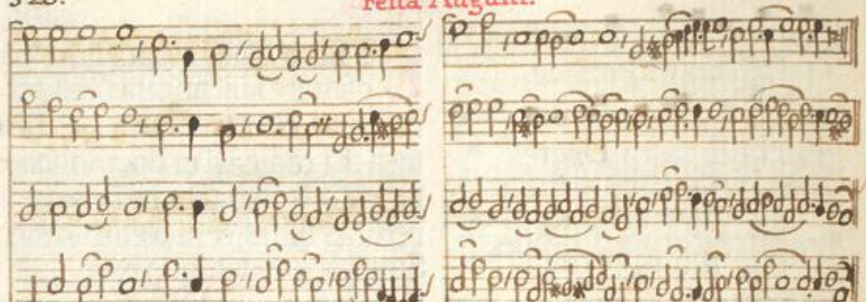 328.
Festa Augusti.